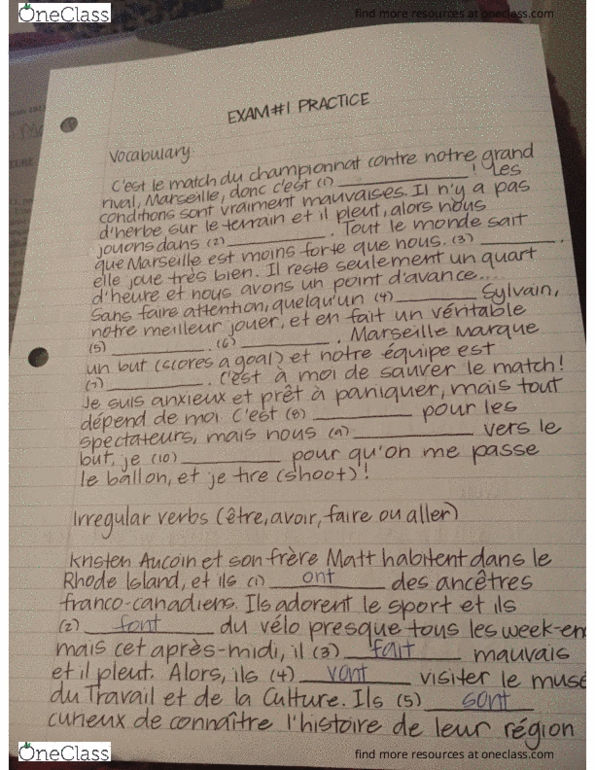 OneClass
find more resources at oneclass.com
EXAM#1 PRACTICE
Vocabulary
C'est le match du championnat contre notre grand
rival, Marseille, donc c'est (1) ____________! Les
conditions sont vraiment mauvaises. Il n'y a pas
d'herbe sur le terrain et il pleut, alors nous
jouons dans (2) __________. Tout le monde sait
que Marseille est moins forte que nous. (3) ________.
elle joue très bien. Il reste seulement un quart
d'heure et nous avons un point d'avance...
Sans faire attention, quelqu'un (4) ________ Sylvain,
notre meilleur jouer, et en fait un véritable
(5) __________. (6) __________. Marseille marque
un but (scores a goal) et notre équipe est
(7) __________. C'est à moi de sauver le match!
Je suis anxieux et prêt à paniquer, mais tout
dépend de moi. C'est (8) __________ pour les
spectateurs, mais nous (9) ____________ vers le
but, je (10) __________ pour qu'on me passe
le ballon, et je tire (shoot)!
Irregular verbs (être, avoir, faire ou aller)
Kristen Aucoin et son frère Matt habitent dans le
Rhode Island, et ils (1) ont des ancêtres
franco-canadiens. Ils adorent le sport et ils
(2) font du vélo presque tous les week-en
mais cet après-midi, il (3) fait mauvais
et il pleut. Alors, ils (4) vont visiter le musé
du Travail et de la Culture. Ils (5) sont
curieux de connaître l'histoire de leur région
OneClass
find more resources at oneclass.com